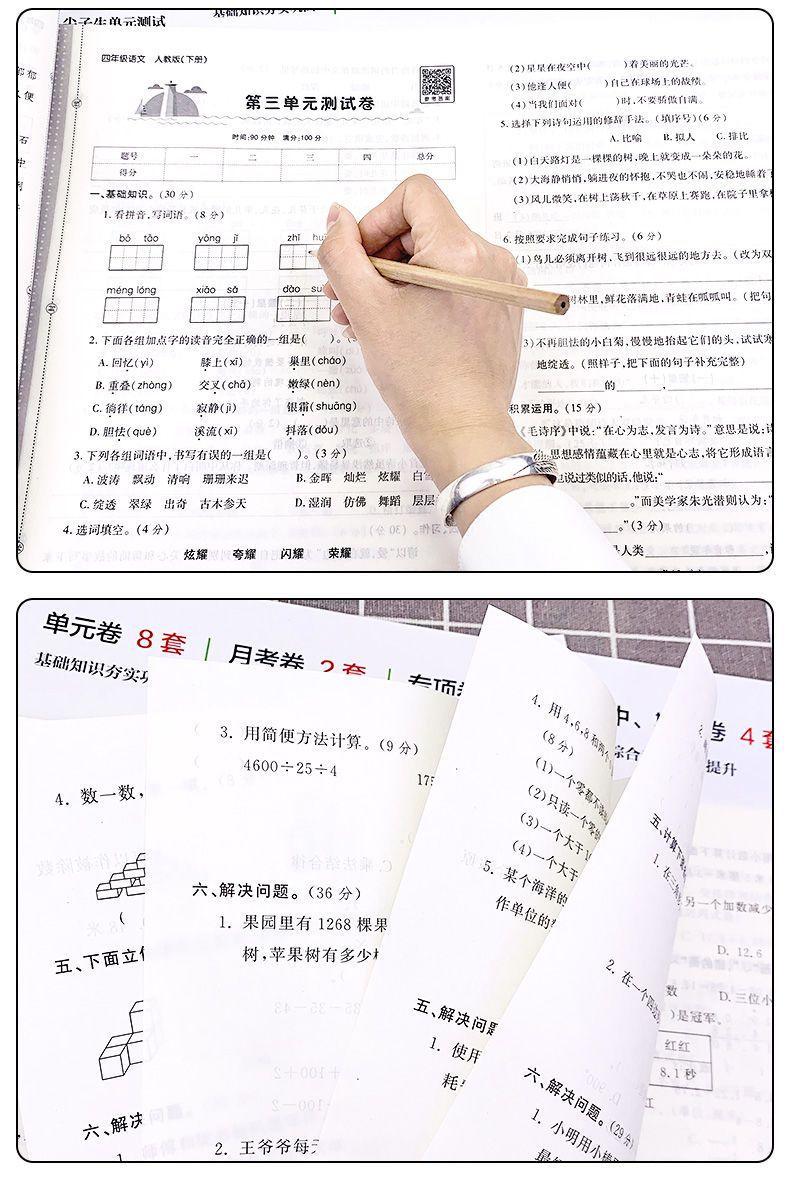 尖子生单元测试
四年级语文 人教版(下册)
参考答案
第三单元测试卷
时间:90分钟 满分:100分
题号 一 二 三 四 总分
得分
一、基础知识。(30分)
1.看拼音,写词语。(8分)
bō tāo yōng jǐ zhī
méng lóng xiāo sǎ dào
2.下面各组加点字的读音完全正确的一组是( )。
A.回忆(yì) 膝上(xī) 巢里(cháo)
B.重叠(zhòng) 交叉(chā) 嫩绿(nèn)
C.徜徉(táng) 寂静(jì) 银霜(shuāng)
D.胆怯(què) 溪流(xī) 抖落(dǒu)
3.下列各组词语中,书写有误的一组是( )。(3分)
A.波涛 飘动 清响 珊珊来迟 B.金晖 灿烂 炫耀
C.绽透 翠绿 出奇 古木参天 D.湿润 仿佛 舞蹈 层层
4.选词填空。(4分)
炫耀 夸耀 闪耀 荣耀
(2)星星在夜空中( )着美丽的光芒。
(3)他逢人便( )自己在球场上的战绩。
(4)当我们面对( )时,不要骄傲自满。
5.选择下列诗句运用的修辞手法。(填序号)(6分)
A.比喻 B.拟人 C.排比
(1)白天路灯是一棵棵的树,晚上就变成一朵朵的花。
(2)大海静悄悄,躺进夜的怀抱,不哭也不闹,安稳地睡着
(3)风儿微笑,在树上荡秋千,在草原上赛跑,在院子里拿
6.按照要求完成句子练习。(6分)
(1)鸟儿必须离开树,飞到很远很远的地方去。(改为双
树林里,鲜花落满地,青蛙在呱呱叫。(把句
3)不再胆怯的小白菊,慢慢地抬起它们的头,试试
地绽透。(照样子,把下面的句子补充完整)
的
积累运用。(15分)
《毛诗序》中说:“在心为志,发言为诗。”意思是说:
思想感情蕴藏在心里就是心志,将它形成语言
也说过类似的话,他说:“
。”而美学家朱光潜则认为:“
。”(3分)
是人类
单元卷 8套 月考卷 2套 专项
中、 卷 4套
基础知识夯实巩
综合 提升
4.数一数,
五、下面立
六、解决
3.用简便方法计算。(9分)
4600÷25÷4 175
六、解决问题。(36分)
1.果园里有1268棵果
树,苹果树有多少
2.王爷爷每
4.用4,6,8和两个
(8分)
(1)一个零都不读
(2)只读一个零的
(3)一个大于
(4)一个大于
5.某个海洋的
作单位的
五、解决问题
1.使用
耗
五、计算下
1.在三
2.在一个四
六、解决问题。(29分)
1.小明用小棒
另一个加数减少
D.12.6
数 D.三位小
)是冠军。
红红
8.1秒